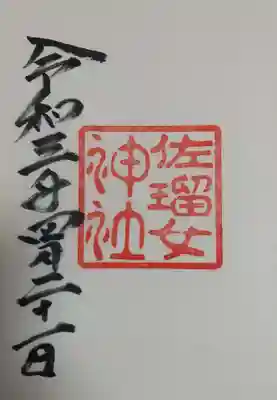 佐瑠女
神社
令和三年四月二十一日